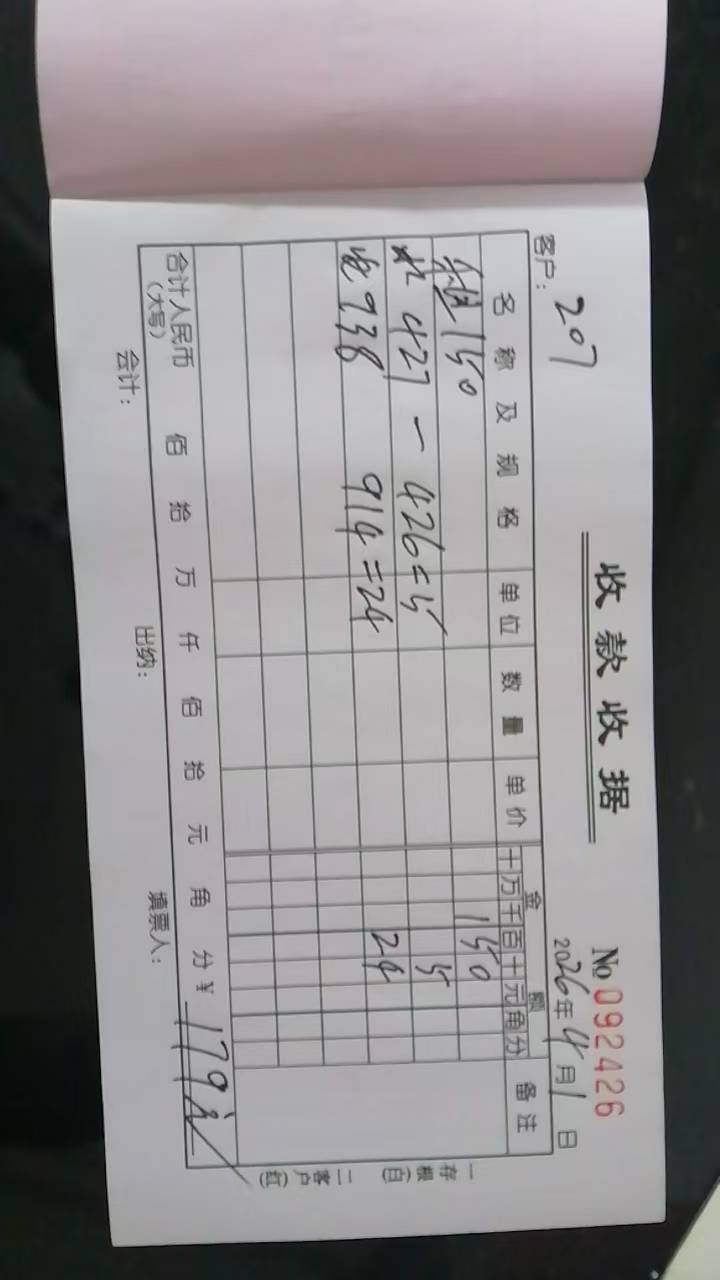 收款收据
№ 092426
客户：207
2026年4月1日
名称及规格 单位 数量 单价 金额 备注
十万千百十元角分
租150 150
水 427 - 426=5 5
电938 914=24 24
合计人民币（大写） 佰 拾 万 仟 佰 拾 元 角 分 ¥ 179元
会计： 出纳： 填票人：
一存根（白） 二客户（红）